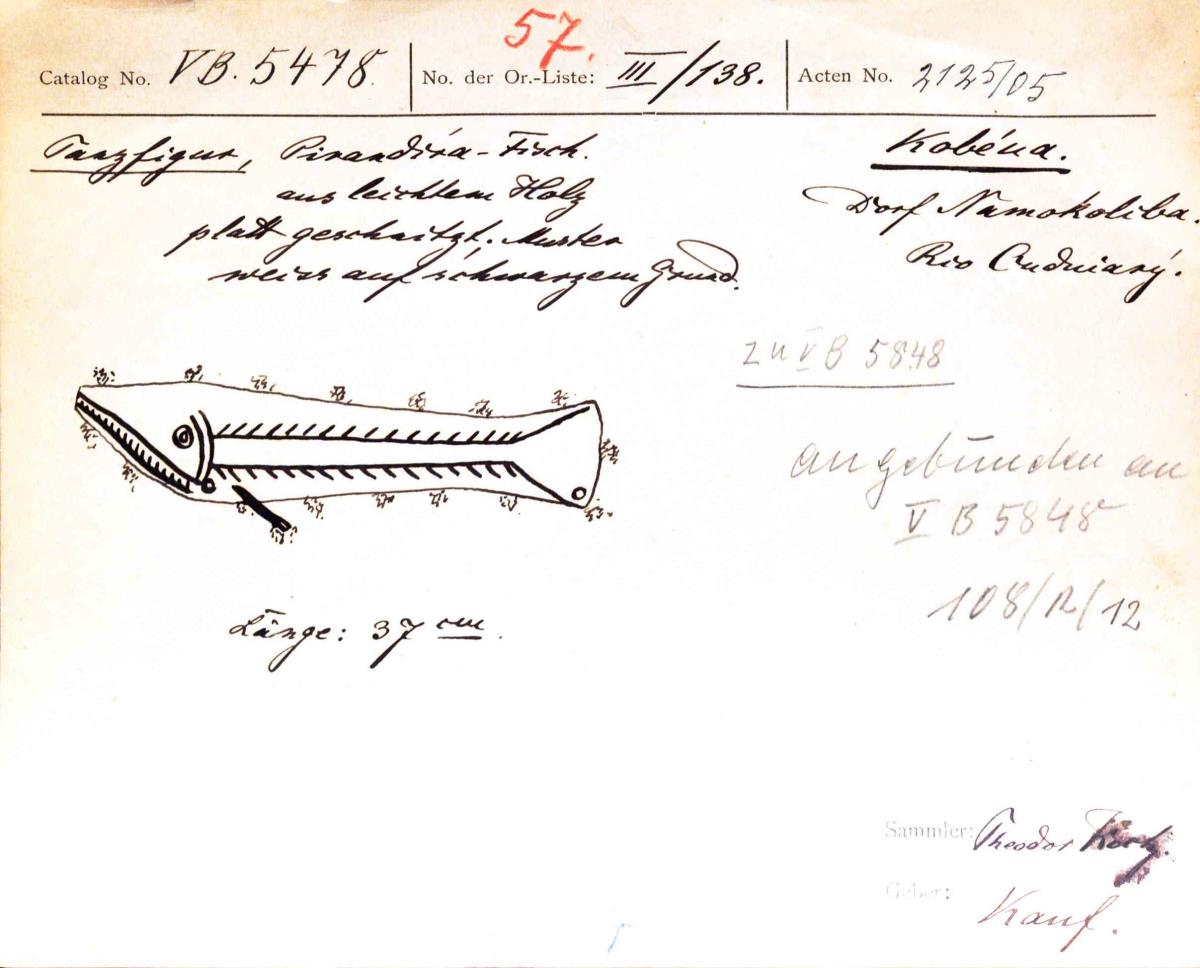 57.
Catalog No. VB. 5478. No. der Or.-Liste: III/138. Acten No. 2125/05
Tanzfigur, Pirandíra-Fisch.
aus leichtem Holz
platt geschnitzt. Muster
weiss auf schwarzem Grund.
Kobéua.
Dorf Namokoliba.
Rio Cuduiarý.
zu V B 5848
angebunden an
V B 5848
108/R/12
Länge: 37 cm.
Sammler: Theodor Koch.
Geber: Kauf.